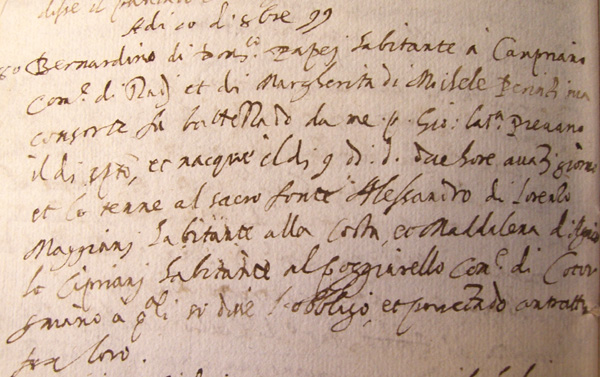 Adi 10 di 8bre 99
Bernardino di Dom.co Papej habitante a Campriano
Com.e di et di Margherita di Michele
consorte fu battezzato da me p. Gio: Pievano
il di spto, et nacque il di 9 di d. due hore avanzi giorno
et lo tenne al sacro fonte Alessandro di Lorenzo
Maggianj habitante alla Costa, et Maddalena di
lo Ciprianj habitante al Poggiarello Com.e di Cotor
gniano a q.li si disse l'obbligo, et parentado contratto
fra loro.